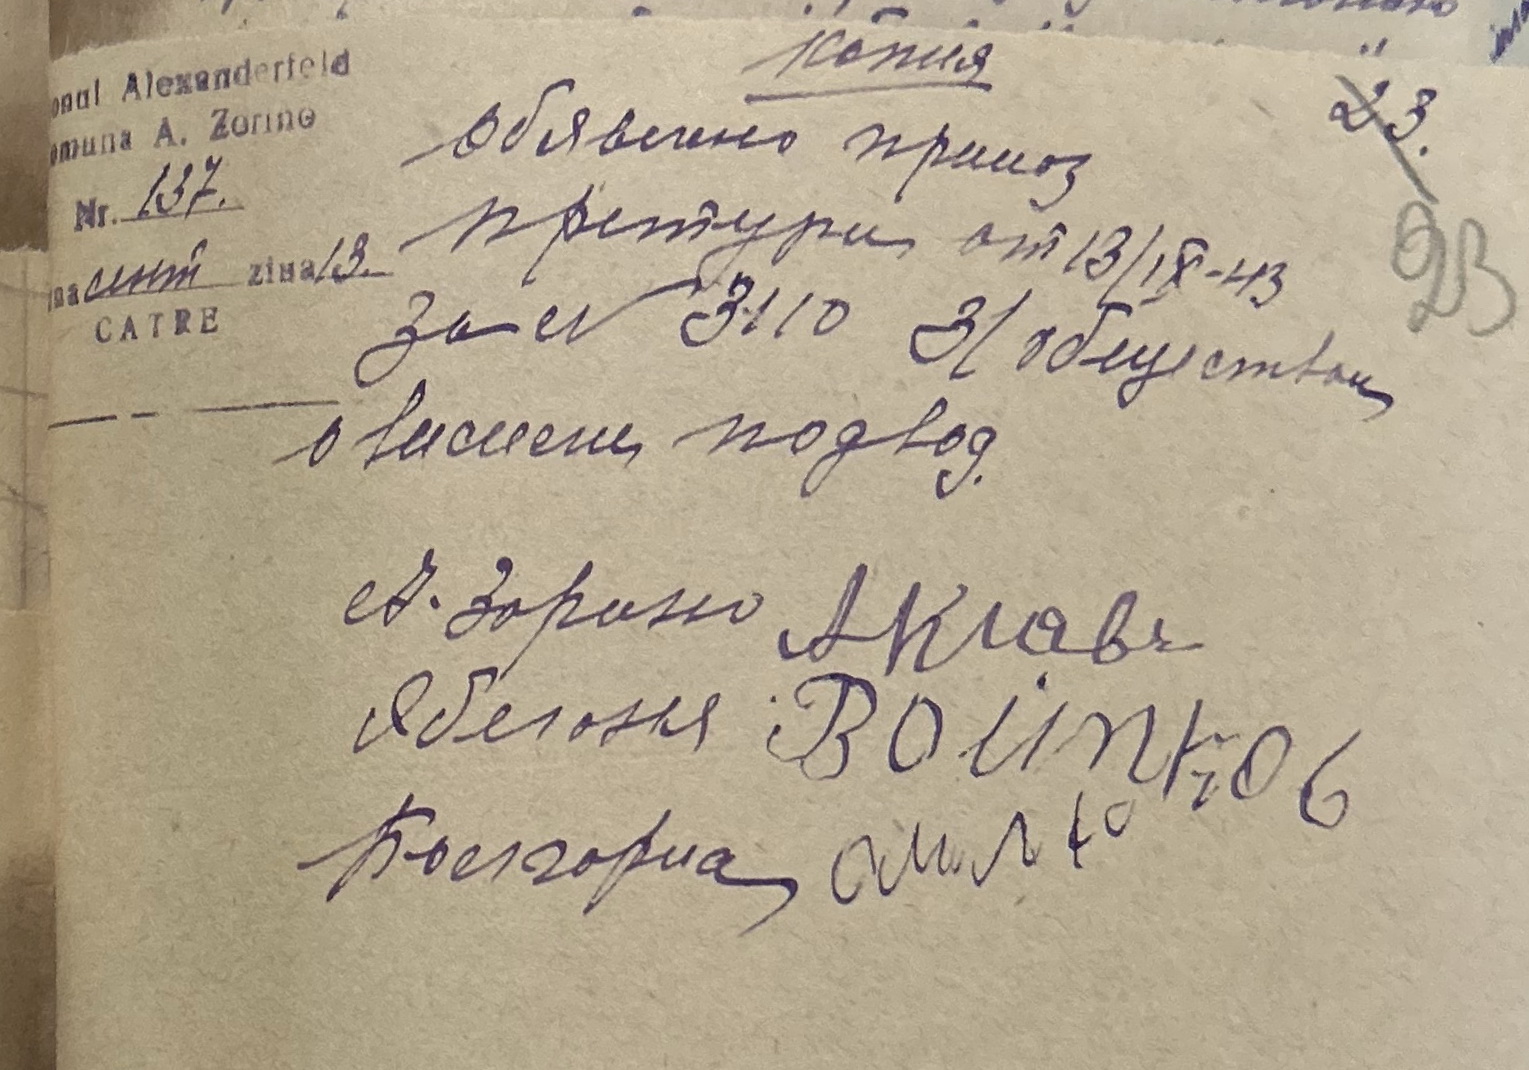 Копия
23.
23
onul Alexanderfeld
omuna A. Zorino
Nr. 137.
na сент ziua 13.
CATRE
Обявлено приказ
претури от 13/IX-43
за № 3110 3/ обществам
о высылки подвод.
А. Зорино
Яблоня Войтков
Болгарка